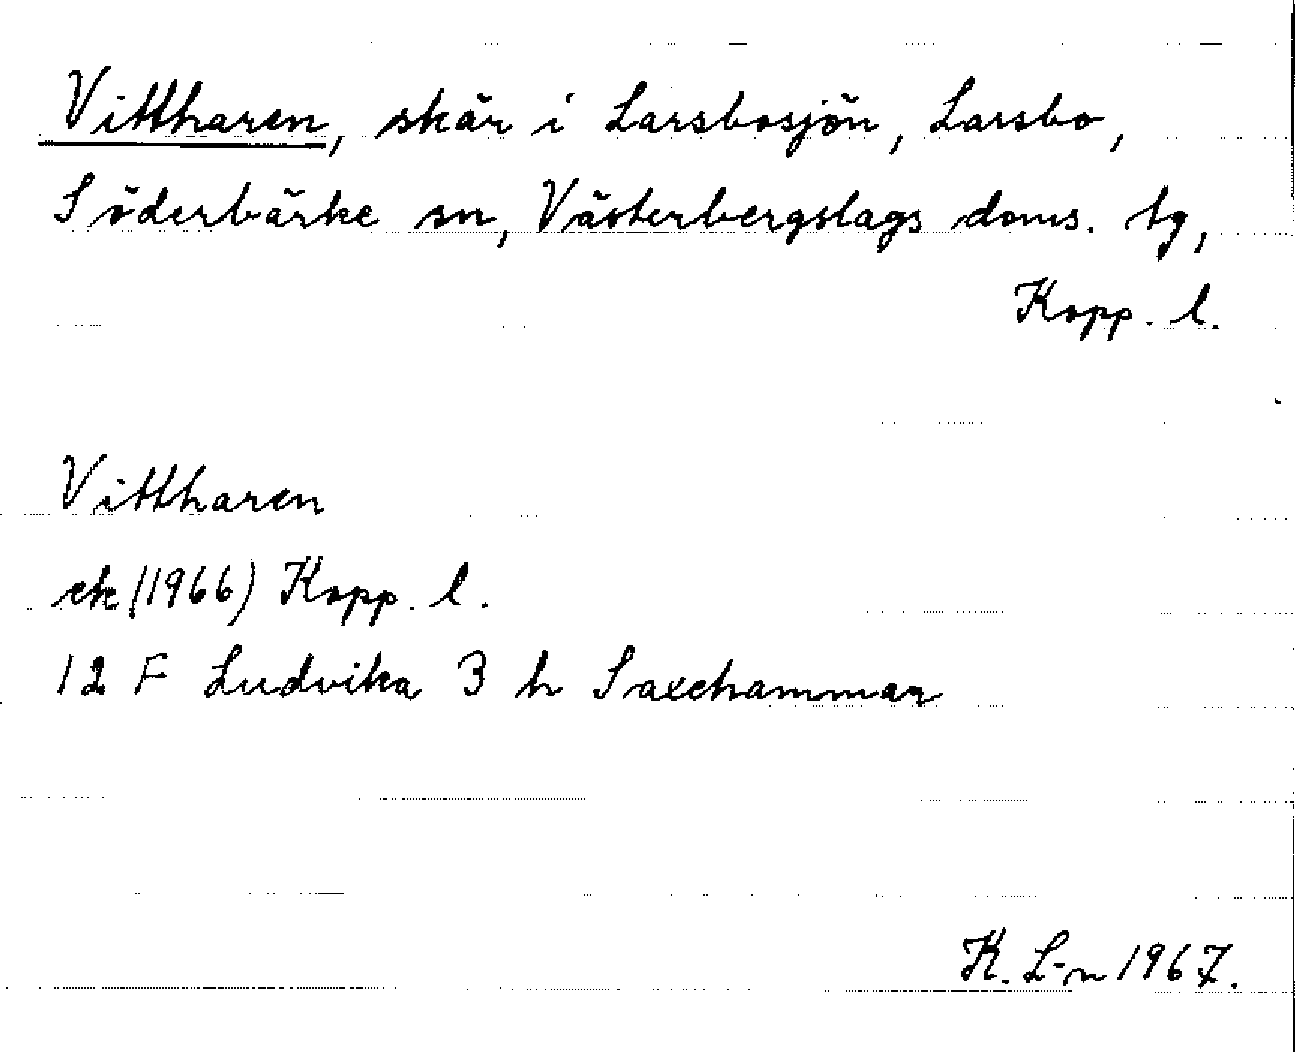 Vittharen, skär i Larsbosjön, Larsbo,
Söderbärke sn, Västerbergslags doms. tg,
Kopp. l.
Vittharen
ek (1966) Kopp. l.
12 F Ludvika 3 h Saxehammar
K. L-n 1967.